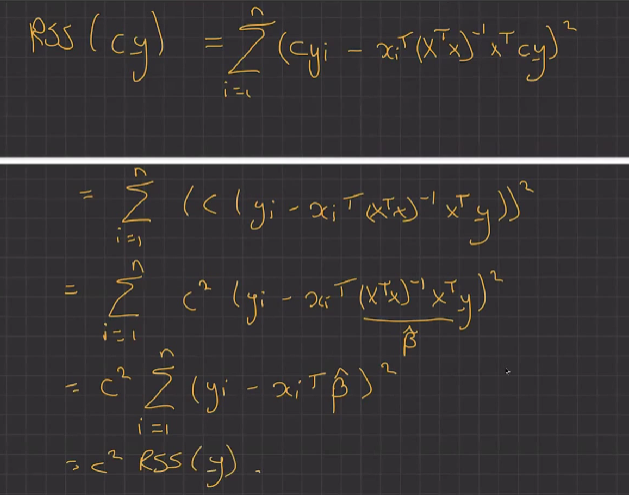 RSS(cy) = n∑i=1 (cyi − xiᵀ(XᵀX)⁻¹xᵀcy)²
= n∑i=1 (c(yi − xiᵀ(XᵀX)⁻¹xᵀy))²
= n∑i=1 c²(yi − xiᵀ(XᵀX)⁻¹xᵀy)²
β̂
= c² n∑i=1 (yi − xiᵀβ̂)²
= c² RSS(y).